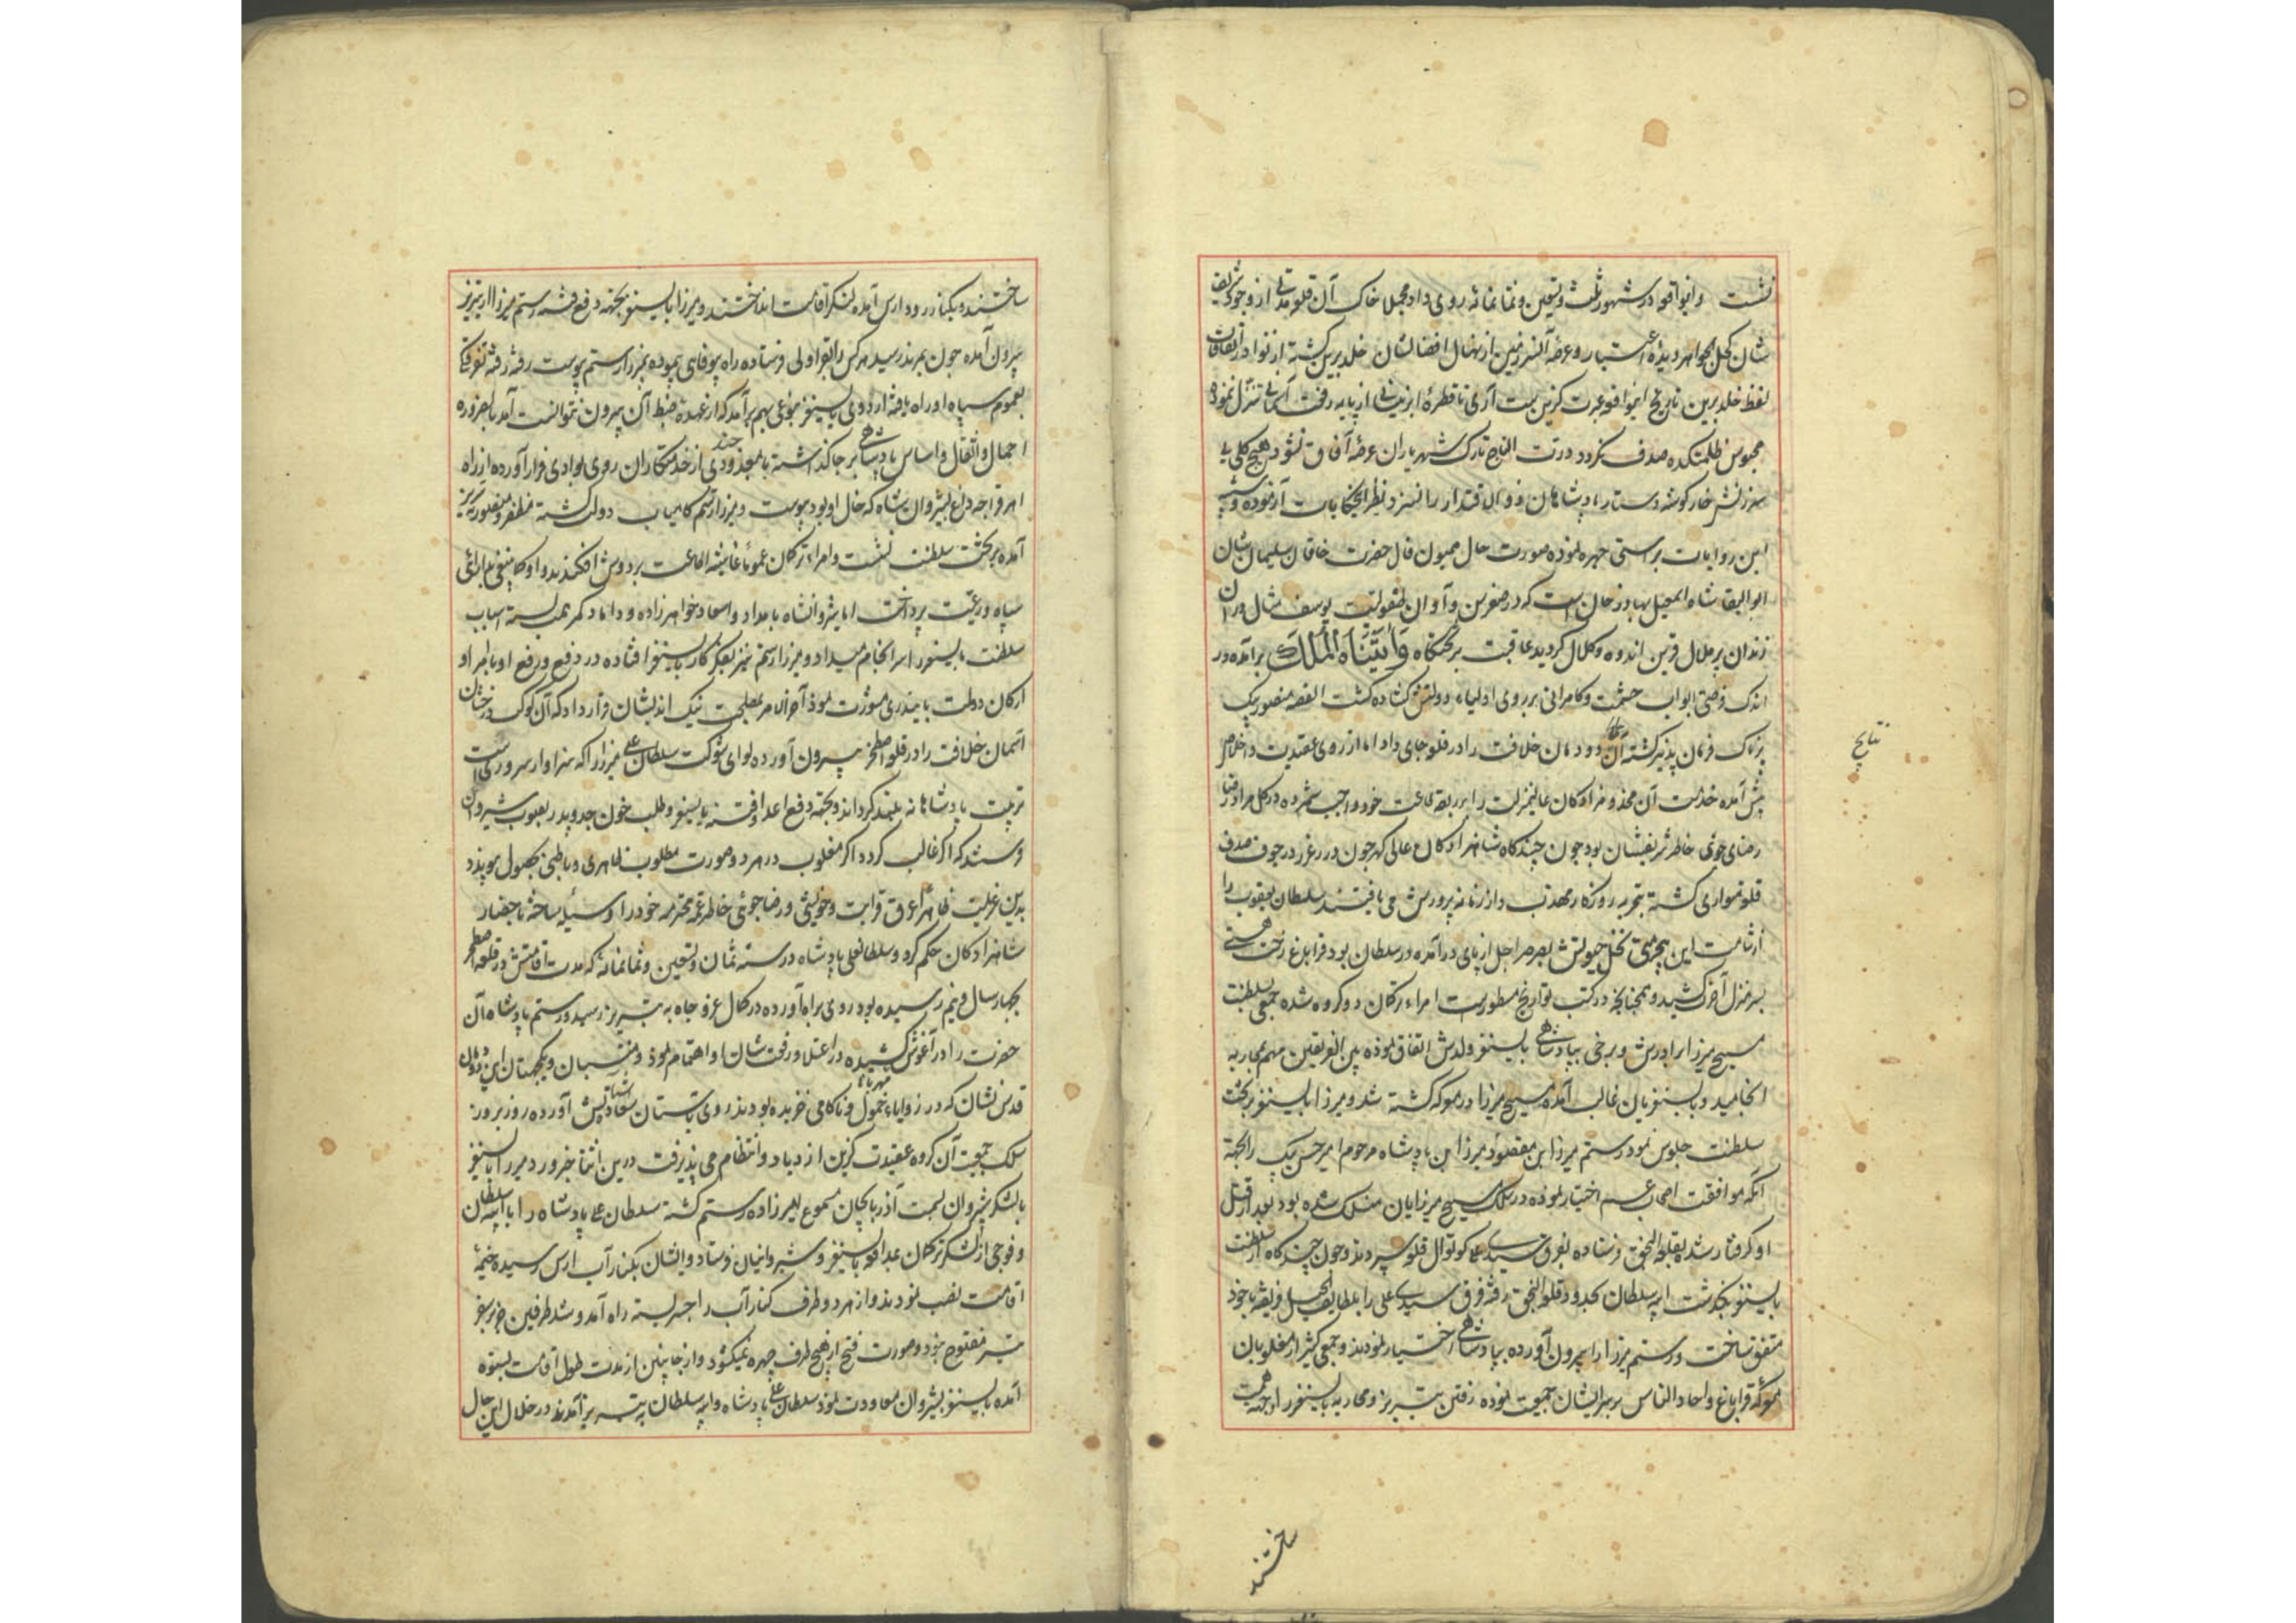 نشست و این واقعه در شهور ثلث و تسعین و ثمانمائه روی داد مجمل خاک آن قلعه مدتی از وجود شریف
شان کحل الجواهر دیده اعتبار و عرصه آن سرزمین از نهال افضالشان خلد برین گشته از نوادر اتفاقات
لفظ خلد برین تاریخ این واقعه عبرت گزین است آری تا قطره ابر نیسانی از پایه رفعت آسمانی تنزل نموده
محبوس ظلمتکده صدف نگردد درة التاج تارک شهریاران عرصه آفاق نشود و هیچ گلی بی
سرزنش خار گوشه دستار پادشاهان ذوالاقتدار را نسزد نظر
این روایات براستی چهره نموده صورت حال همیون فال حضرت خاقان سلیمان شان
ابوالبقا شاه اسمعیل بهادر خان است که در صغر سن و اوان طفولیت یوسف مثال در ان
زندان پر ملال قرین اندوه و کلال گردید عاقبت بر تختگاه وَآتَيْنَاهُ الْمُلْكَ برآمده در
اندک فرصتی ابواب حشمت و کامرانی بر روی اولیاء دولتش گشاده گشت القصه منصور بیک
پرناک فرمان پذیر گشته آن دودمان خلافت را در قلعه جای داد اما از روی عقیدت و اخلاص
پیش آمده خدمت آن مخدومزادگان عالیمنزلت را بر ربقه طاعت خود واجب شمرده در کل مراد رضا
رضای جوئی خاطر شریفشان بود چون چندگاه شاهزادگان عالی گهر چون در غرر در جوف صدف
قلعه متواری گشته بتجربه روزگار مهذب و از زمانه پرورش می یافتند سلطان یعقوب را
از شامت این بیحرمتی نخل حیوتش بصرصر اجل از پای در آمده در سلطان بود قراباغ رخت هستی
بسر منزل آخرت کشید و همچنانچه در کتب تواریخ مسطورست امراء ترکمان دو گروه شده جمعی بسلطنت
مسیح میرزا برادرش و برخی بپادشاهی بایسنغر ولدش اتفاق نموده بین الفریقین مهم بمحاربه
انجامید و بایسنغریان غالب آمده مسیح میرزا در معرکه کشته شد و میرزا بایسنغر بر تخت
سلطنت جلوس نمود رستم میرزا بن مقصود میرزا بن پادشاه مرحوم امیر حسن بیک را بجهة
آنکه موافقت عم اختیار نموده در سلک مسیح میرزایان منسلک شده بود بعد از قتل
او گرفتار شده بقلعه النجق فرستاده بقرق سیدی علی کوتوال قلعه سپردند و چون چندگاه از سلطنت
بایسنغر بگذشت ایبه سلطان بحدود قلعه النجق رفته قرق سیدی علی را بلطایف الحیل فریفته با خود
متفق ساخت و رستم میرزا را بیرون آورده بپادشاهی اختیار نمودند و جمعی کثیر از مغلوبان
معرکه قراباغ و احاد الناس بر سر ایشان جمعیت نموده رفتن بتبریز و محاربه بایسنغر را وجهه همت
نتایج
ساختند
ساختند و بکنار رود ارس آمده لنگر اقامت انداختند و میرزا بایسنغر بجهته دفع فتنه رستم میرزا از تبریز
بیرون آمده چون بمرند رسید هر کس را بقراولی فرستاده راه بیوفایی پیموده بمیرزا رستم پیوست رفته رفته تفرقه
بعموم سپاه او راه یافته اردوی بایسنغر بنوعی بهم برآمد که از عهده ضبط آن بیرون نتوانست آمد بالضروره
احمال و اثقال و اساس پادشاهی بر جا گذاشته با معدودی چند از خدمتکاران روی بوادی فرار آورده از راه
اهر قراجه داغ بشیروان شاه که خال او بود پیوست و میرزا رستم کامیاب دولت گشته مظفر و منصور بتبریز
آمده بر تخت سلطنت نشست و امراء ترکمان عموما غاشیه اطاعت بر دوش افکندند و او کما ینبغی بدارائی
سپاه و رعیت پرداخت اما شروانشاه بامداد و اسعاد خواهرزاده و داماد کمر همت بسته اسباب
سلطنت بایسنغر را سرانجام میداد و میرزا رستم نیز بفکر کار بایسنغر افتاده در دفع و رفع او با امرا و
ارکان دولت پایندری مشورت نمود آخر الامر بمصلحت نیک اندیشان قرار داد که آن کوکب درخشان
آسمان خلافت را از قلعه اصطخر بیرون آورده لوای شوکت سلطان علی میرزا را که سزاوار سروری است
تربیت پادشاهانه بلند گرداند و بجهته دفع اعدا و فتنه بایسنغر و طلب خون جد و پدر بصوب شیروان
فرستد که اگر غالب گردد اگر مغلوب در هر دو صورت مطلوب ظاهری و باطنی بحصول موپیوندد
بدین عزیمت ظاهرا عرق قرابت و خویشی و رضا جوئی خاطر عمه محترمه خود را وسیله ساخته باحضار
شاهزادگان حکم کرد و سلطانعلی پادشاه در سنه ثمان و تسعین و ثمانمائه که مدت اقامتش در قلعه اصطخر
بچهار سال و نیم رسیده بود روی براه آورده در کمال عز و جاه به تبریز رسید و رستم پادشاه آن
حضرت را در آغوش مهربانی کشیده در اعتلا و رفعت شان او اهتمام نمود و منتسبان و یکجهتان این دودمان
قدس نشان که در زوایاء خمول و ناکامی خزیده بودند روی بآستان سعادتش آورده روز بروز
سلک جمعیت آن گروه عقیدت گزین ازدیاد و انتظام می پذیرفت درین اثنا خبر ورود میرزا بایسنغر
با لشکر شیروان بسمت آذربایجان مسموع میرزاده رستم گشته سلطان علی پادشاه را با ایبه سلطان
و فوجی از لشکر ترکمان بمدافعه بایسنغر و شیروانیان فرستاد و ایشان بکنار آب ارس رسیده خیمه
اقامت نصب نمودند و از هر دو طرف کنار آب را جسر بسته راه آمد و شد طرفین جز بر سفر
تیر مفتوح نبود و صورت فتح از هیچ طرف چهره نمیگشود و از جانبین از مدت طول اقامت بستوه
آمده بایسنغر بشیروان معاودت نمود سلطان علی پادشاه و ایبه سلطان به تبریز آمدند در خلال این حال